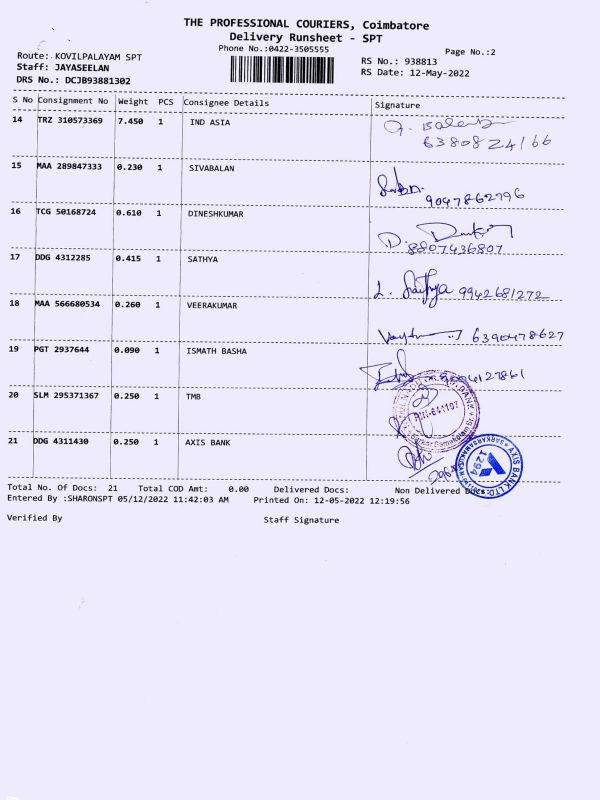 THE PROFESSIONAL COURIERS, Coimbatore
Delivery Runsheet - SPT
Phone No.:0422-3505555
Page No.:2
Route: KOVILPALAYAM SPT
Staff: JAYASEELAN
DRS No.: DCJB93881302
RS No.: 938813
RS Date: 12-May-2022
S No Consignment No Weight PCS Consignee Details Signature
14 TRZ 310573369 7.450 1 IND ASIA
6380824166
15 MAA 289847333 0.230 1 SIVABALAN
9047862796
16 TCG 50168724 0.610 1 DINESHKUMAR
8807436807
17 DDG 4312285 0.415 1 SATHYA
L. Sathya 9942681272
18 MAA 566680534 0.260 1 VEERAKUMAR
6390478627
19 PGT 2937644 0.090 1 ISMATH BASHA
20 SLM 295371367 0.250 1 TMB
21 DDG 4311430 0.250 1 AXIS BANK
AXIS BANK LTD.
Total No. Of Docs: 21 Total COD Amt: 0.00 Delivered Docs: Non Delivered Docs:
Entered By :SHARONSPT 05/12/2022 11:42:03 AM Printed On: 12-05-2022 12:19:56
Verified By Staff Signature